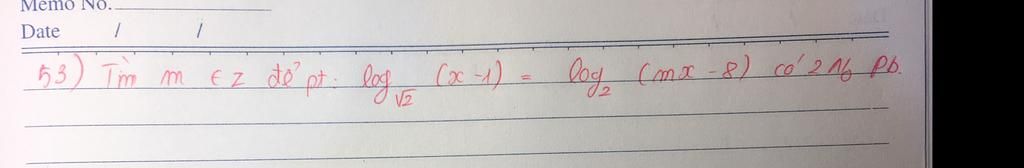 Memo No.
Date / /
53) Tìm m ∈ Z để pt: log_√2 (x-1) = log_2 (mx-8) có 2 No Pb.